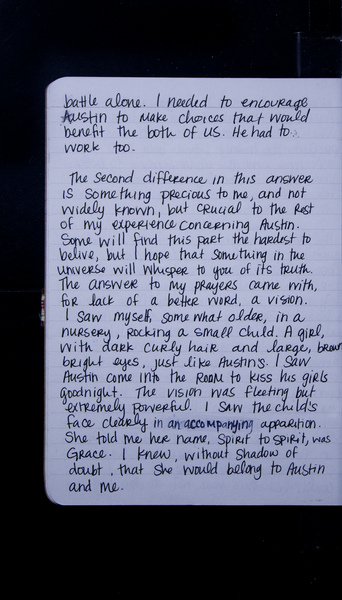 battle alone. I needed to encourage
Austin to make choices that would
benefit the both of us. He had to
work too.
The second difference in this answer
is something precious to me, and not
widely known, but crucial to the rest
of my experience concerning Austin.
Some will find this part the hardest to
belive, but I hope that something in the
universe will whisper to you of its truth.
The answer to my prayers came with,
for lack of a better word, a vision.
I saw myself, somewhat older, in a
nursery, rocking a small child. A girl,
with dark curly hair and large, brown
bright eyes, just like Austin's. I saw
Austin come into the room to kiss his girls
goodnight. The vision was fleeting but
extremely powerful. I saw the child's
face clearly in an accompanying apparition.
She told me her name, spirit to spirit, was
Grace. I knew, without shadow of
doubt, that she would belong to Austin
and me.